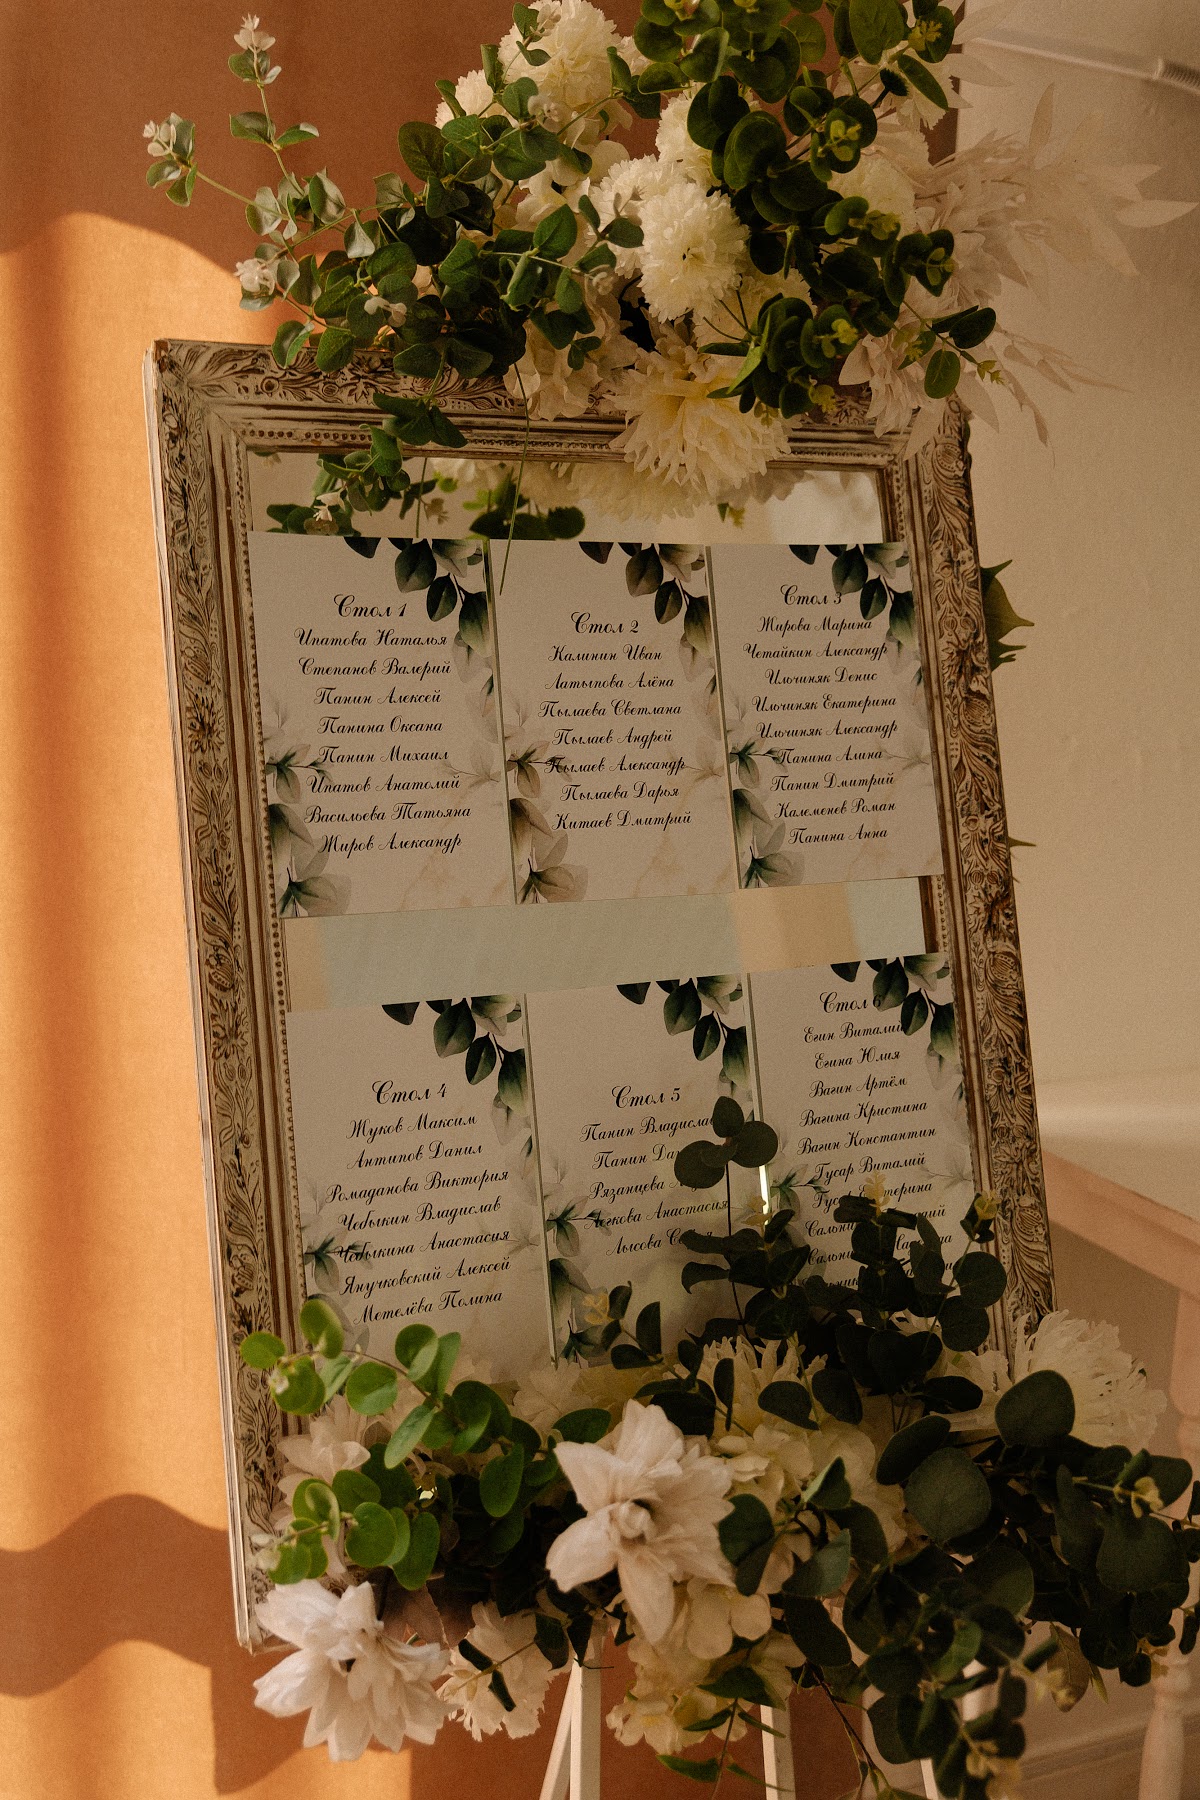 Стол 1
Ипатова Наталья
Степанов Валерий
Панин Алексей
Панина Оксана
Панин Михаил
Ипатов Анатолий
Васильева Татьяна
Жиров Александр
Стол 2
Калинин Иван
Латыпова Алёна
Пылаева Светлана
Пылаев Андрей
Пылаев Александр
Пылаева Дарья
Китаев Дмитрий
Стол 3
Жирова Марина
Четайкин Александр
Ильчиняк Денис
Ильчиняк Екатерина
Ильчиняк Александр
Панина Алина
Панин Дмитрий
Калеменев Роман
Панина Анна
Стол 4
Жуков Максим
Антипов Данил
Ромаданова Виктория
Чобыкин Владислав
Чобыкина Анастасия
Янучковский Алексей
Метелёва Полина
Стол 5
Панин Владислав
Панин
Рязанцева
Легкова Анастасия
Лысова
Стол 6
Егин Виталий
Егина Юлия
Вагин Артём
Вагина Кристина
Вагин Константин
Гусар Виталий
Гусар Екатерина